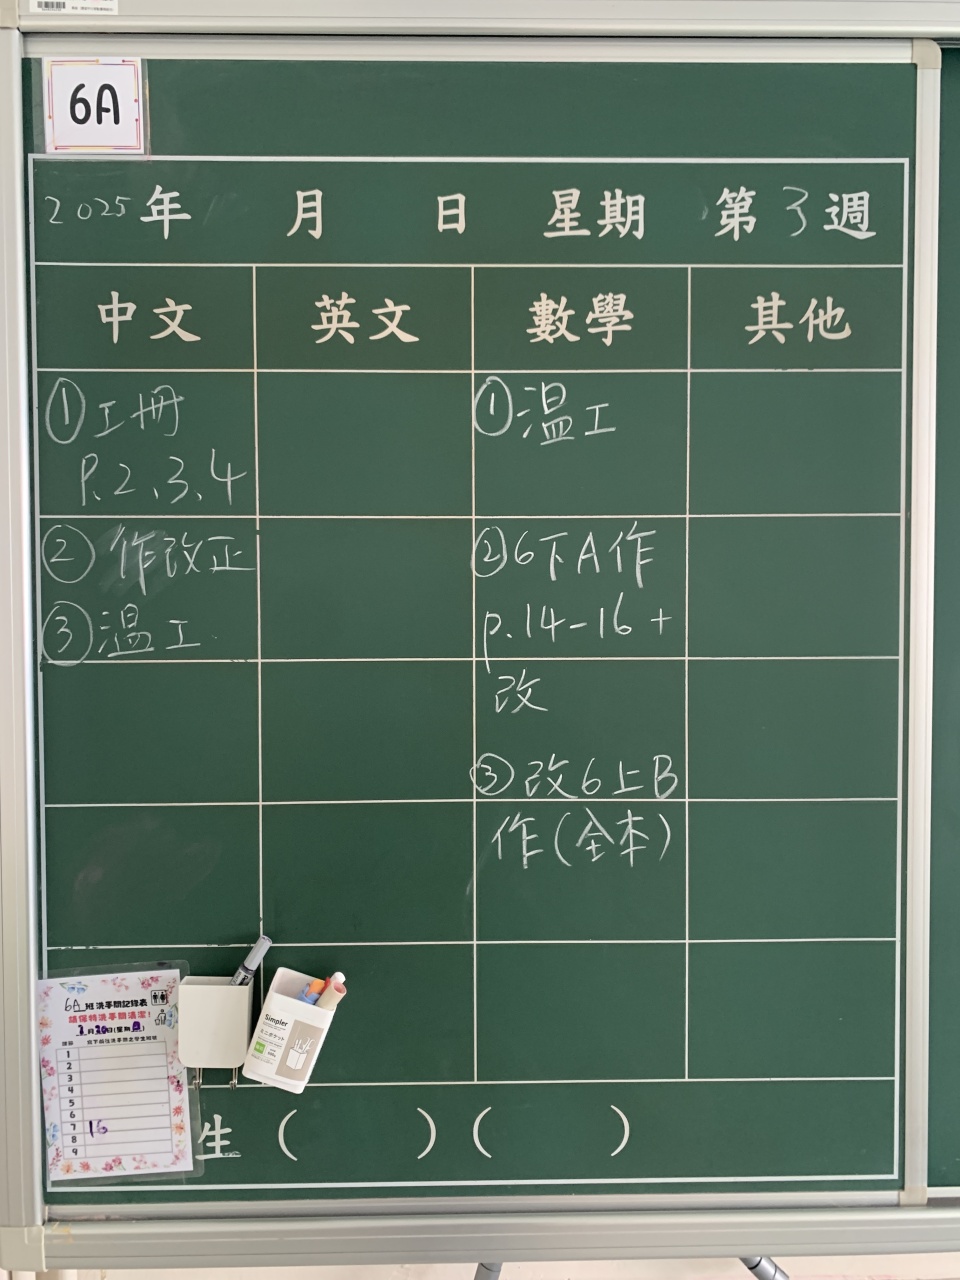 6A
2025年 月 日 星期 第3週
中文 英文 數學 其他
①工冊
P.2、3、4
②作改正
③温工
①温工
②6下A作
p.14-16+
改
③改6上B
作(全本)
6A班洗手間記錄表
請保持洗手間清潔!
月 日(星期 )
1
2
3
4
5
6
7 16
8
9
Simpler
ミニポケット
生 ( ) ( )